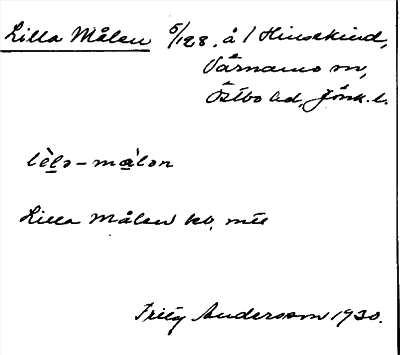 Lilla Målen 5/128, å 1 Hinsekind,
Värnamo sn,
Östbo hd, Jönk. l.
lèlə-målən
Lilla Målen kb,
Fritz Andersson 1930.